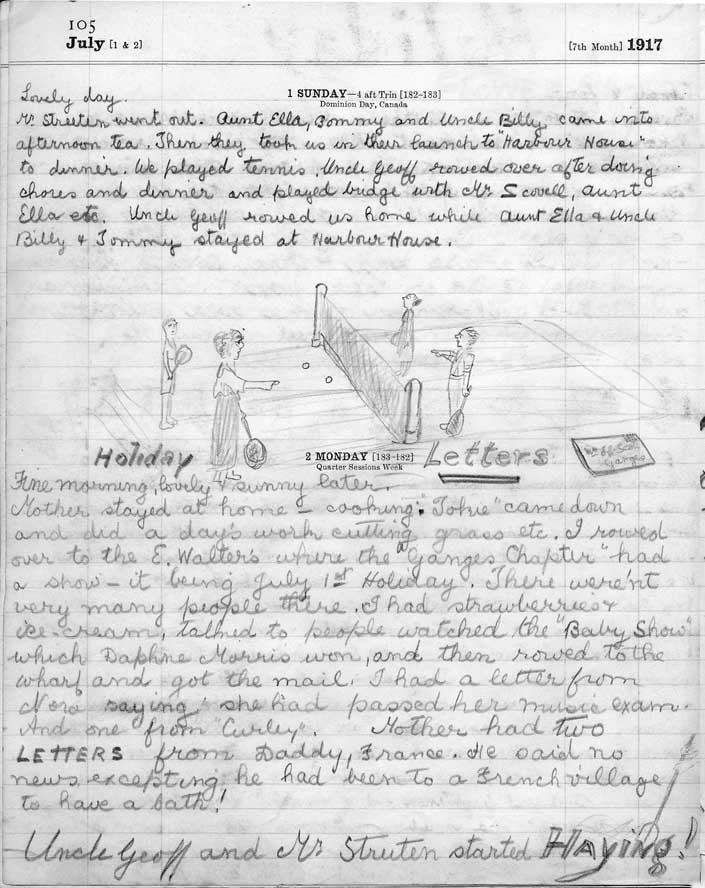 105
July [1 & 2]
[7th Month] 1917
1 SUNDAY—4 aft Trin [182-183]
Dominion Day, Canada
Lovely day.
Mr Streeten went out. Aunt Ella, Tommy and Uncle Billy came into
afternoon tea. Then they took us in their launch to "Harbour House"
to dinner. We played tennis, Uncle Geoff rowed over after doing
chores and dinner and played bridge with Mr Scovell, Aunt
Ella etc. Uncle Geoff rowed us home while Aunt Ella & Uncle
Billy & Tommy stayed at Harbour House.
Holiday
2 MONDAY [183-182]
Quarter Sessions Week
Letters
Ganges
Fine morning, lovely & sunny later.
Mother stayed at home – cooking. "Tokie" came down
and did a day's work cutting grass etc. I rowed
over to the E. Walter's where the "Ganges Chapter" had
a show – it being July 1st Holiday. There weren't
very many people there. I had strawberries &
ice-cream, talked to people watched the "Baby Show"
which Daphne Morris won, and then rowed to the
wharf and got the mail. I had a letter from
Nora saying she had passed her music exam.
And one from "Curley". Mother had two
LETTERS from Daddy, France. He said no
news excepting he had been to a French village
to have a bath!
Uncle Geoff and Mr Struten started Haying!